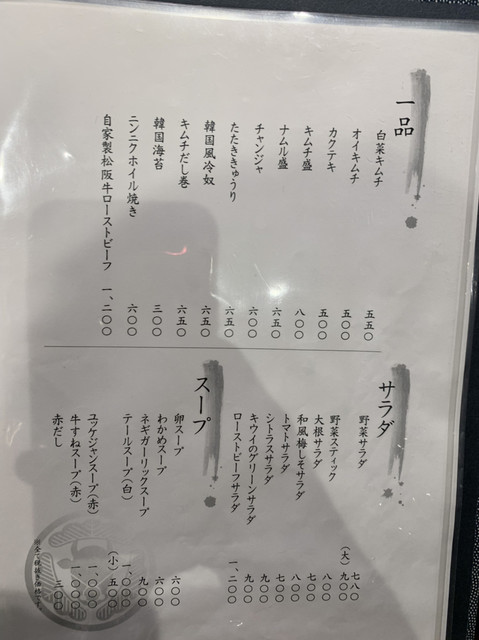 一品
白菜キムチ 五五〇
オイキムチ 五〇〇
カクテキ 五〇〇
キムチ盛 八〇〇
ナムル盛 六五〇
チャンジャ 六〇〇
たたききゅうり 六五〇
韓国風冷奴 六五〇
キムチだし巻 六五〇
韓国海苔 三〇〇
ニンニクホイル焼き 六〇〇
自家製松阪牛ローストビーフ 一、二〇〇
サラダ
野菜サラダ 七八〇
(大)九〇〇
野菜スティック 八〇〇
大根サラダ 七〇〇
和風梅しそサラダ 八〇〇
トマトサラダ 七〇〇
シトラスサラダ 九〇〇
キウイのグリーンサラダ 九〇〇
ローストビーフサラダ 一、二〇〇
スープ
卵スープ 六〇〇
わかめスープ 六〇〇
ネギガーリックスープ 九〇〇
テールスープ(白) 一、〇〇〇
(小)五〇〇
ユッケジャンスープ(赤) 一、〇〇〇
牛すねスープ(赤) 一、〇〇〇
赤だし 三〇〇
※全て税抜き価格です。